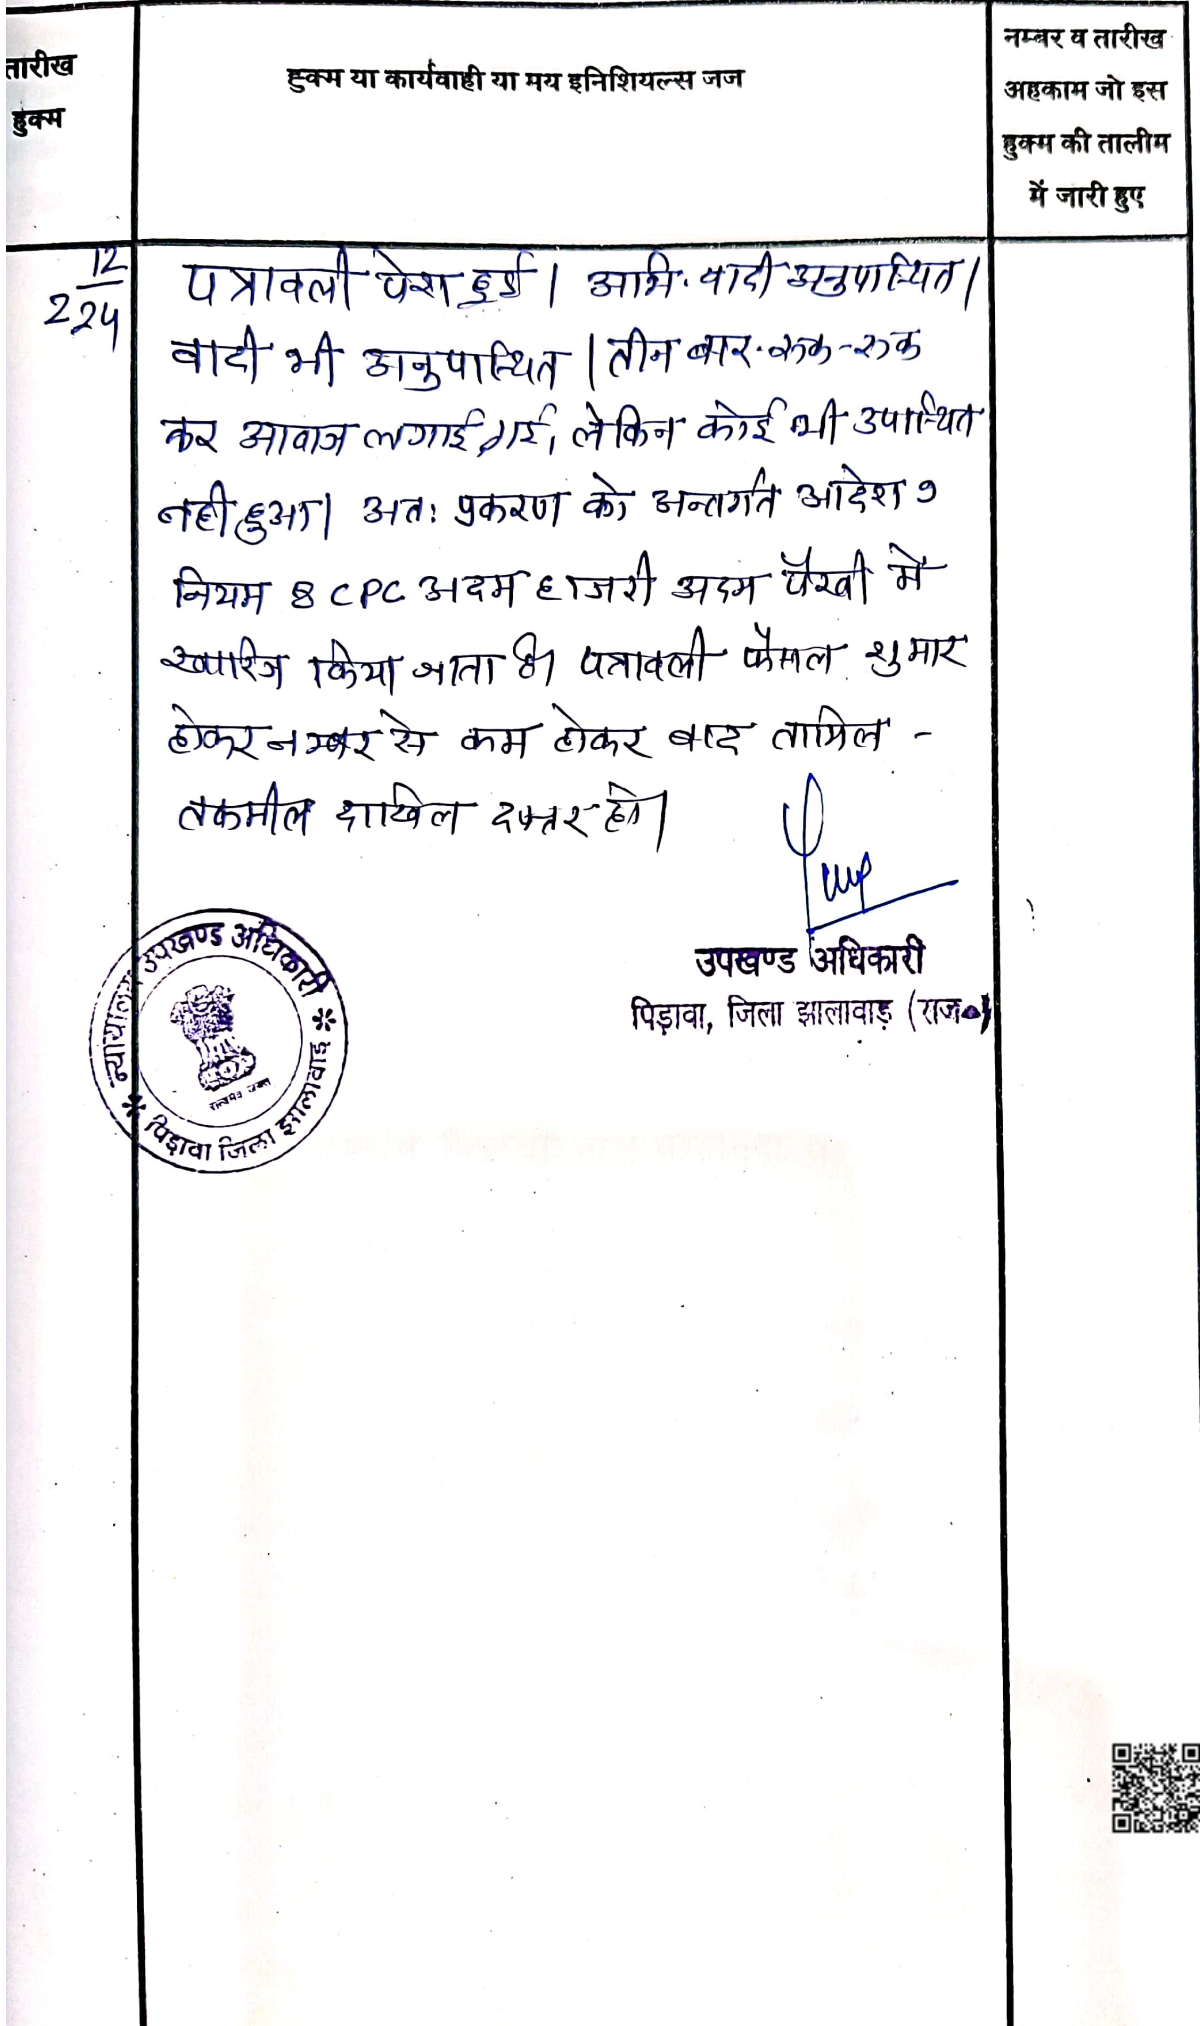 तारीख
हुक्म
हुक्म या कार्यवाही या मय इनिशियल्स जज
नम्बर व तारीख
अहकाम जो इस
हुक्म की तालीम
में जारी हुए
12
2 24
पत्रावली पेश हुई। अभि. वादी अनुपस्थित।
वादी भी अनुपस्थित। तीन बार रूक-रूक
कर आवाज लगाई गई, लेकिन कोई भी उपस्थित
नही हुआ। अतः प्रकरण को अन्तर्गत आदेश 9
नियम 8 CPC अदम हाजरी अदम पैरवी में
खारिज किया जाता है। पत्रावली फैसल शुमार
होकर नम्बर से कम होकर बाद तामिल -
तकमील दाखिल दफ्तर हो।
उपखण्ड अधिकारी
पिड़ावा, जिला झालावाड़ (राज०)
न्यायालय उपखण्ड अधिकारी
पिड़ावा जिला झालावाड़
सत्यमेव जयते